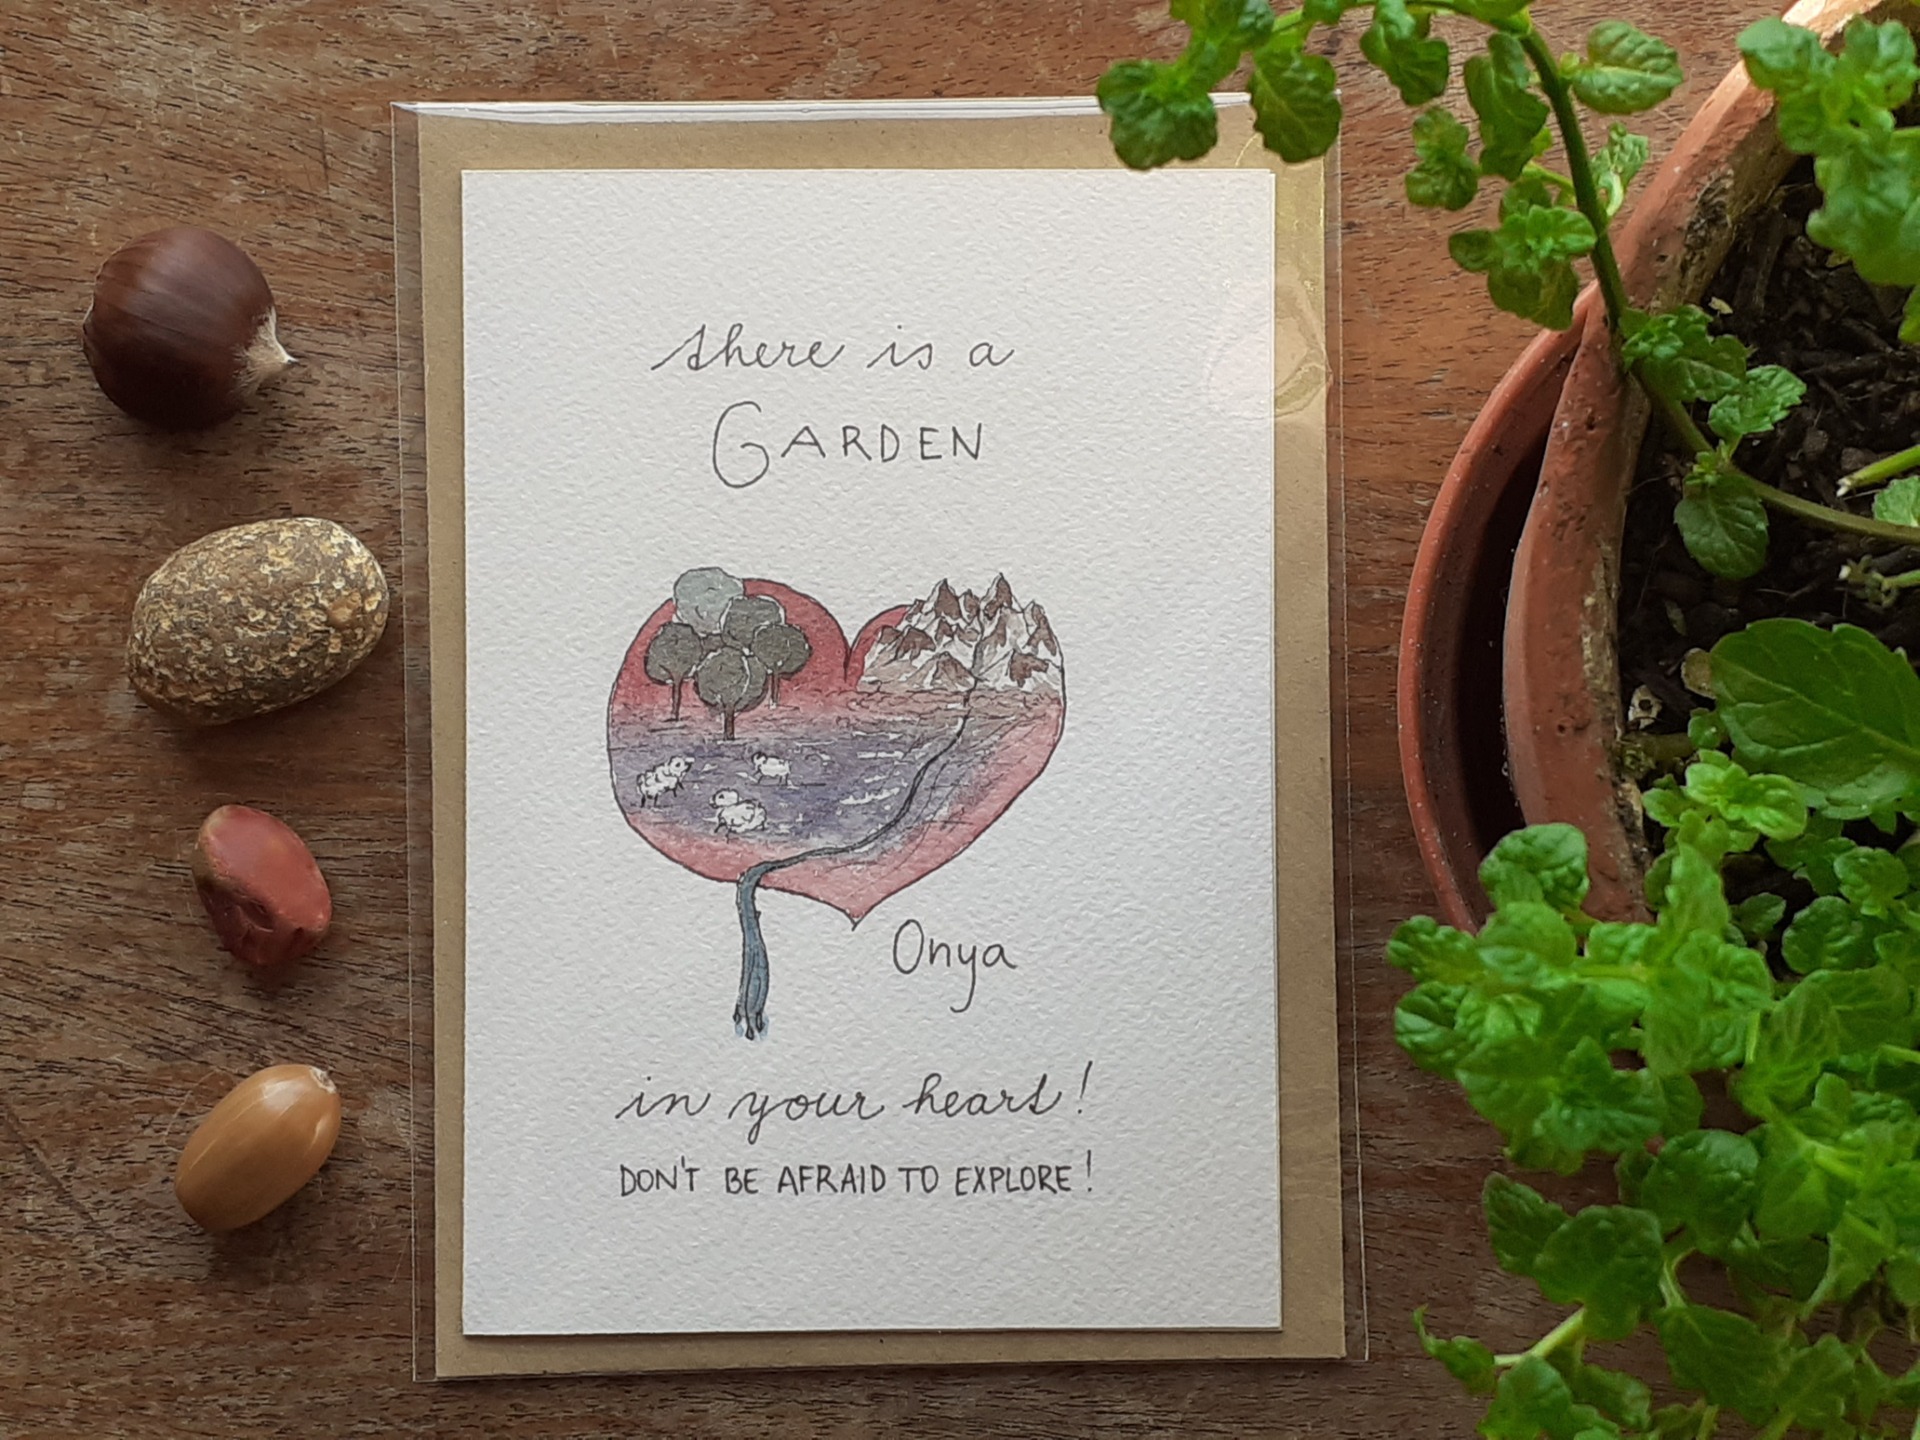 there is a
GARDEN
Onya
in your heart!
DON'T BE AFRAID TO EXPLORE!